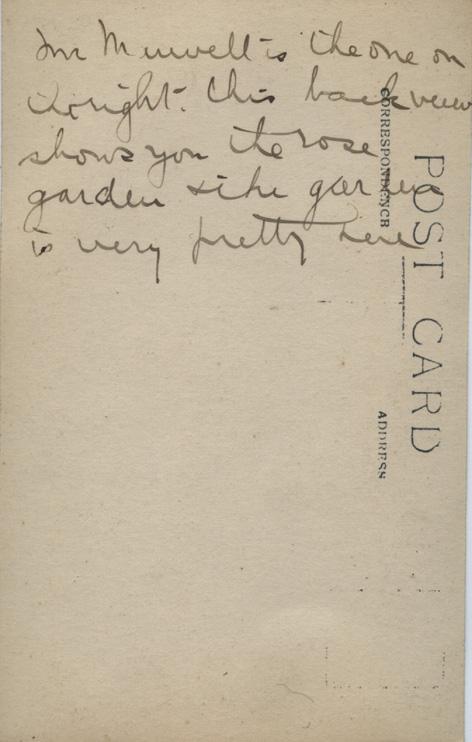 Mr Muwell is the one on
the right. this back view
shows you the rose
garden & the garden
is very pretty here
POST CARD
CORRESPONDENCE
ADDRESS